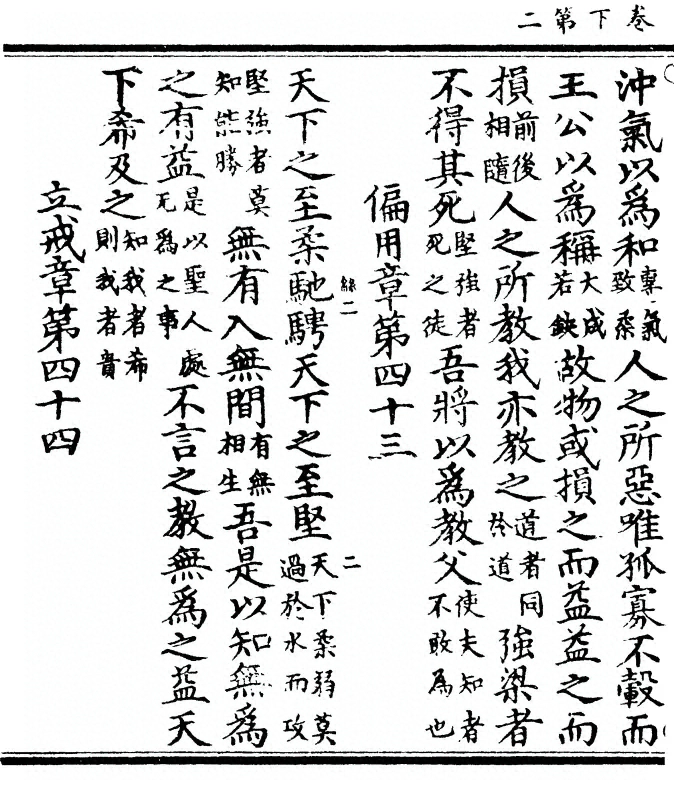 卷下第二
沖氣以為和專氣致柔人之所惡唯孤寡不轂而
王公以為稱大成若缺故物或損之而益益之而
損前後相隨人之所教我亦教之道者同於道強梁者
不得其死堅強者死之徒吾將以為教父使夫知者不敢為也
偏用章第四十三
天下之至柔馳騁天下之至堅天下柔弱莫過於水而攻
堅強者莫知能勝無有入無間有無相生吾是以知無為
之有益是以聖人處無為之事不言之教無為之益天
下希及之知我者希則我者貴
立戒章第四十四